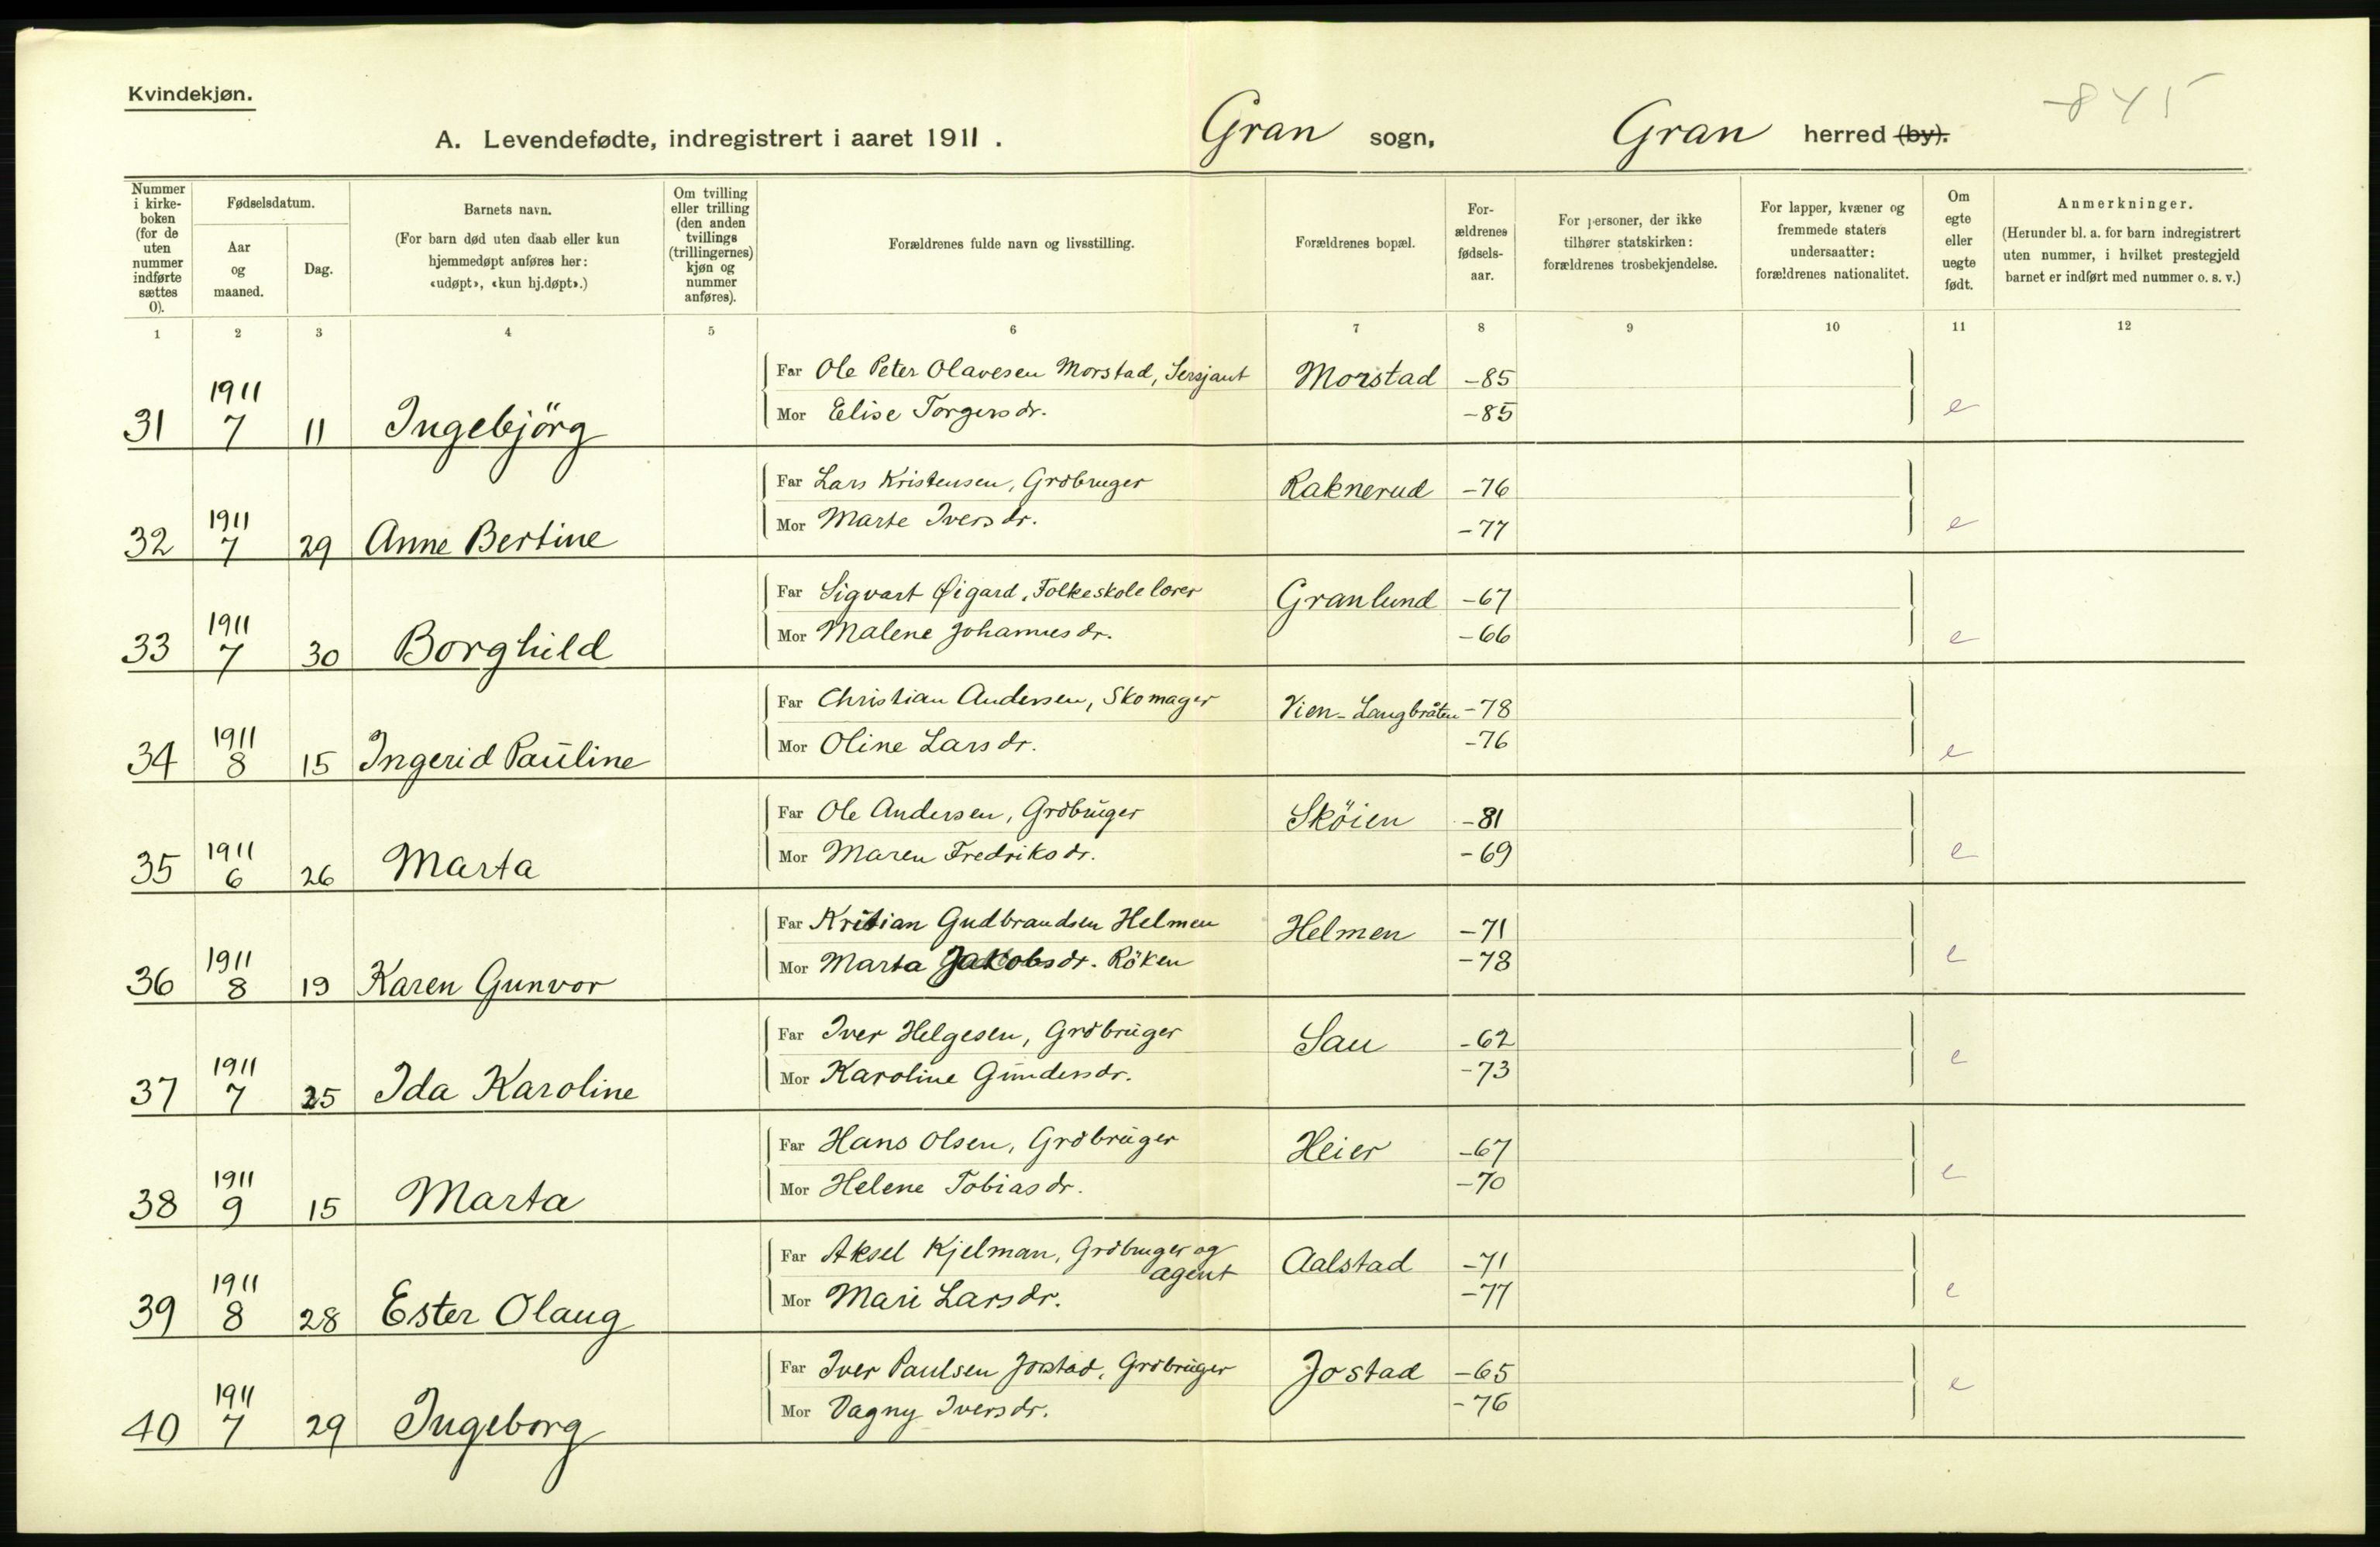 Kvindekjøn.
-845
A. Levendefødte, indregistrert i aaret 1911. Gran sogn, Gran herred (by).
Nummer i kirkeboken (for de uten nummer indførte sættes 0).
Fødselsdatum.
Aar og maaned.
Dag.
Barnets navn.
(For barn død uten daab eller kun hjemmedøpt anføres her: «udøpt», «kun hj.døpt».)
Om tvilling eller trilling (den anden tvillings (trillingernes) kjøn og nummer anføres).
Forældrenes fulde navn og livsstilling.
Forældrenes bopæl.
Forældrenes fødselsaar.
For personer, der ikke tilhører statskirken: forældrenes trosbekjendelse.
For lapper, kvæner og fremmede staters undersaatter: forældrenes nationalitet.
Om egte eller uegte født.
Anmerkninger.
(Herunder bl. a. for barn indregistrert uten nummer, i hvilket prestegjeld barnet er indført med nummer o. s. v.)
1 2 3 4 5 6 7 8 9 10 11 12
Far Ole Peter Olavesen Morstad, Sersjant Morstad -85
31 1911 7 11 Ingebjörg Mor Elise Torgersdr. -85 e
Far Lars Kristensen, Grdbruger Raknerud -76
32 1911 7 29 Anne Bertine Mor Marte Iversdr. -77 e
Far Sigvart Øigard, Folkeskolelærer Granlund -67
33 1911 7 30 Borghild Mor Malene Johannesdr. -66 e
Far Christian Andersen, Skomager Vien-Langbråten -78
34 1911 8 15 Ingerid Pauline Mor Oline Larsdr. -76 e
Far Ole Andersen, Grdbruger Sköien -81
35 1911 6 26 Marta Mor Maren Fredriksdr. -69 e
Far Kristian Gudbrandsen Helmen Helmen -71
36 1911 8 19 Karen Gunvor Mor Marta Jakobsdr. Röken -78 e
Far Iver Helgesen, Grdbruger Sau -62
37 1911 7 25 Ida Karoline Mor Karoline Gundersdr. -73 e
Far Hans Olsen, Grdbruger Heier -67
38 1911 9 15 Marta Mor Helene Tobiasdr. -70 e
Far Aksel Kjelman, Grdbruger og agent Aalstad -71
39 1911 8 28 Ester Olaug Mor Mari Larsdr. -77 e
Far Iver Paulsen Jostad, Grdbruger Jostad -65
40 1911 7 29 Ingeborg Mor Dagny Iversdr. -76 e